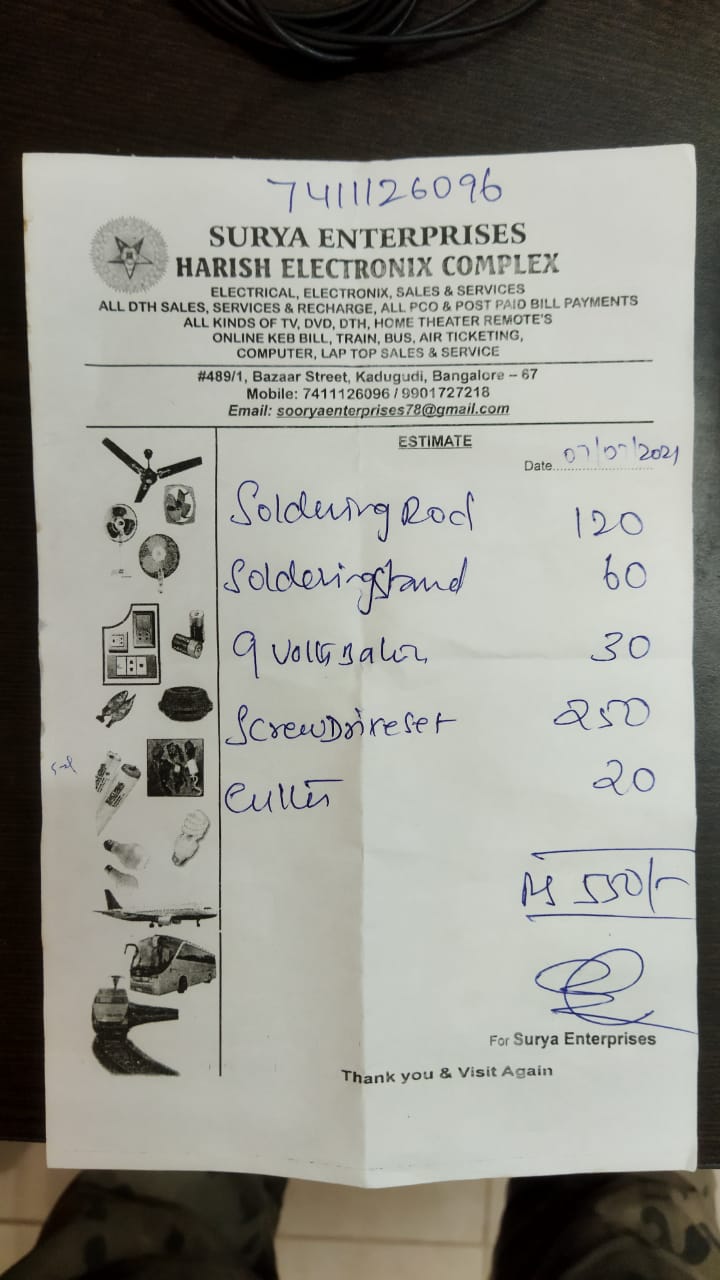 7411126096
SURYA ENTERPRISES
HARISH ELECTRONIX COMPLEX
ELECTRICAL, ELECTRONIX, SALES & SERVICES
ALL DTH SALES, SERVICES & RECHARGE, ALL PCO & POST PAID BILL PAYMENTS
ALL KINDS OF TV, DVD, DTH, HOME THEATER REMOTE'S
ONLINE KEB BILL, TRAIN, BUS, AIR TICKETING,
COMPUTER, LAP TOP SALES & SERVICE
#489/1, Bazaar Street, Kadugudi, Bangalore – 67
Mobile: 7411126096 / 9901727218
Email: sooryaenterprises78@gmail.com
ESTIMATE
Date 07/07/2021
Soldering Rod 120
Soldering stand 60
9 Volts 30
Screw Driveset 250
20
Rs 550/-
For Surya Enterprises
Thank you & Visit Again